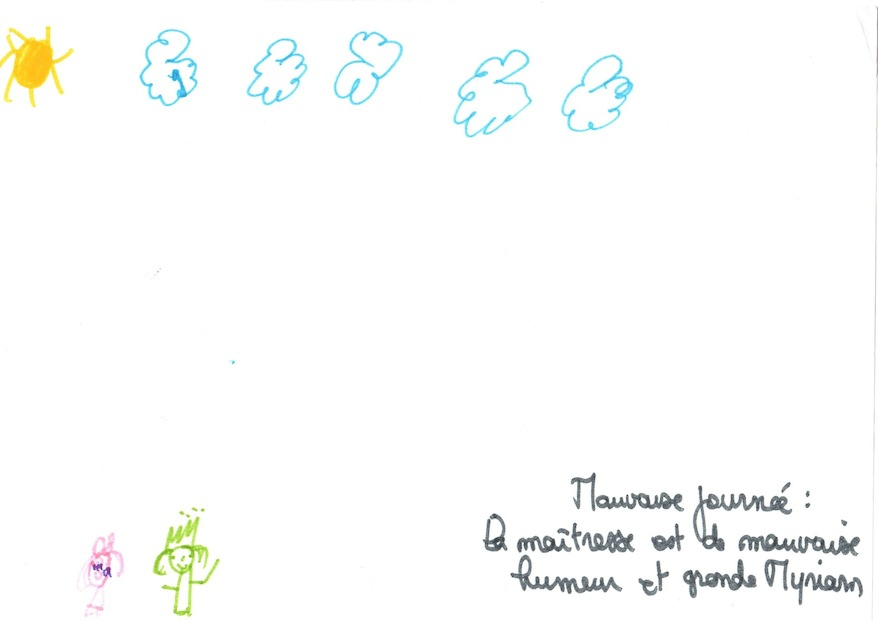 Mauvaise journée :
La maîtresse est de mauvaise
humeur et gronde Myriam